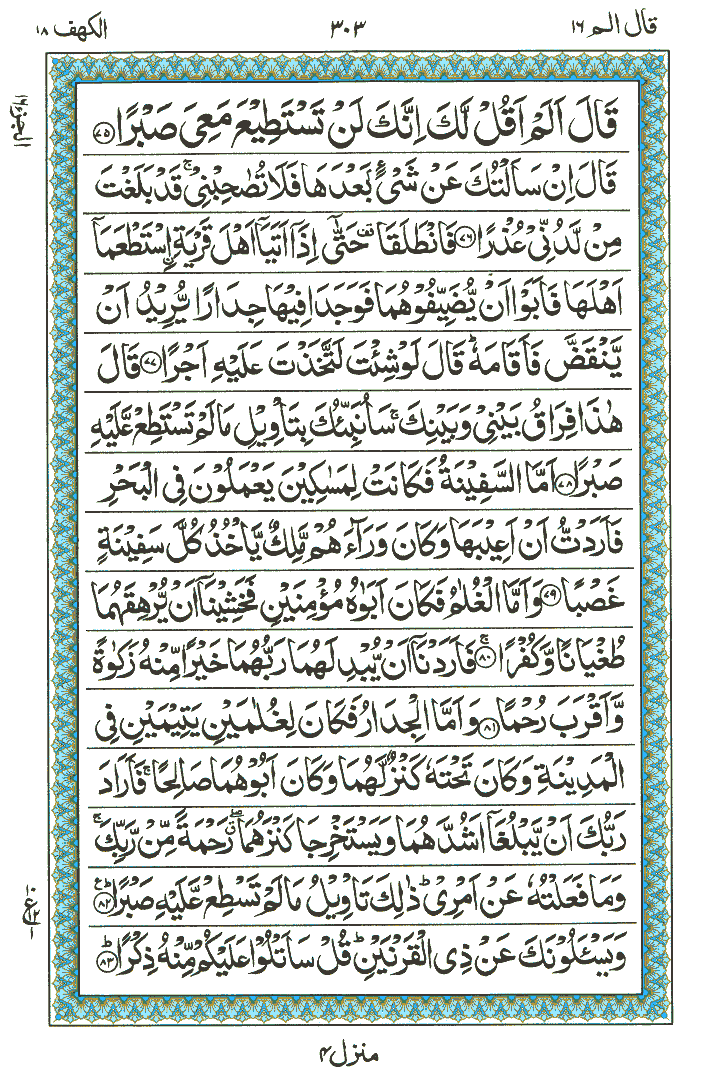 قال الم ١٦
٣٠٣
الكهف ١٨
الجزء ١٦
قَالَ اَلَمْ اَقُلْ لَّكَ اِنَّكَ لَنْ تَسْتَطِيْعَ مَعِيَ صَبْرًا ﴿٧٥﴾
قَالَ اِنْ سَاَلْتُكَ عَنْ شَيْءٍۭ بَعْدَهَا فَلَا تُصٰحِبْنِيْ ۚ قَدْ بَلَغْتَ
مِنْ لَّدُنِّيْ عُذْرًا ﴿٧٦﴾ فَانْطَلَقَا ۥ حَتّٰۤى اِذَاۤ اَتَيَاۤ اَهْلَ قَرْيَةِ ۟اِسْتَطْعَمَاۤ
اَهْلَهَا فَاَبَوْا اَنْ يُّضَيِّفُوْهُمَا فَوَجَدَا فِيْهَا جِدَارًا يُّرِيْدُ اَنْ
يَّنْقَضَّ فَاَقَامَهٗ ؕ قَالَ لَوْ شِئْتَ لَتَّخَذْتَ عَلَيْهِ اَجْرًا ﴿٧٧﴾ قَالَ
هٰذَا فِرَاقُ بَيْنِيْ وَبَيْنِكَ ۚ سَاُنَبِّئُكَ بِتَاْوِيْلِ مَا لَمْ تَسْتَطِعْ عَّلَيْهِ
صَبْرًا ﴿٧٨﴾ اَمَّا السَّفِيْنَةُ فَكَانَتْ لِمَسٰكِيْنَ يَعْمَلُوْنَ فِي الْبَحْرِ
فَاَرَدْتُّ اَنْ اَعِيْبَهَا وَكَانَ وَرَآءَهُمْ مَّلِكٌ يَّاْخُذُ كُلَّ سَفِيْنَةٍ
غَصْبًا ﴿٧٩﴾ وَاَمَّا الْغُلٰمُ فَكَانَ اَبَوٰهُ مُؤْمِنَيْنِ فَخَشِيْنَاۤ اَنْ يُّرْهِقَهُمَا
طُغْيَانًا وَّكُفْرًا ﴿٨٠﴾ ۚ فَاَرَدْنَاۤ اَنْ يُّبْدِلَهُمَا رَبُّهُمَا خَيْرًا مِّنْهُ زَكٰوةً
وَّاَقْرَبَ رُحْمًا ﴿٨١﴾ وَاَمَّا الْجِدَارُ فَكَانَ لِغُلٰمَيْنِ يَتِيْمَيْنِ فِي
الْمَدِيْنَةِ وَكَانَ تَحْتَهٗ كَنْزٌ لَّهُمَا وَكَانَ اَبُوْهُمَا صَالِحًا ۚ فَاَرَادَ
رَبُّكَ اَنْ يَّبْلُغَاۤ اَشُدَّهُمَا وَيَسْتَخْرِجَا كَنْزَهُمَا ۖ رَحْمَةً مِّنْ رَّبِّكَ ۚ
وَمَا فَعَلْتُهٗ عَنْ اَمْرِيْ ؕ ذٰلِكَ تَاْوِيْلُ مَا لَمْ تَسْطِعْ عَّلَيْهِ صَبْرًا ﴿٨٢﴾ ؕ
وَيَسْـَٔلُوْنَكَ عَنْ ذِي الْقَرْنَيْنِ ؕ قُلْ سَاَتْلُوْا عَلَيْكُمْ مِّنْهُ ذِكْرًا ﴿٨٣﴾ ؕ
منزل ٤